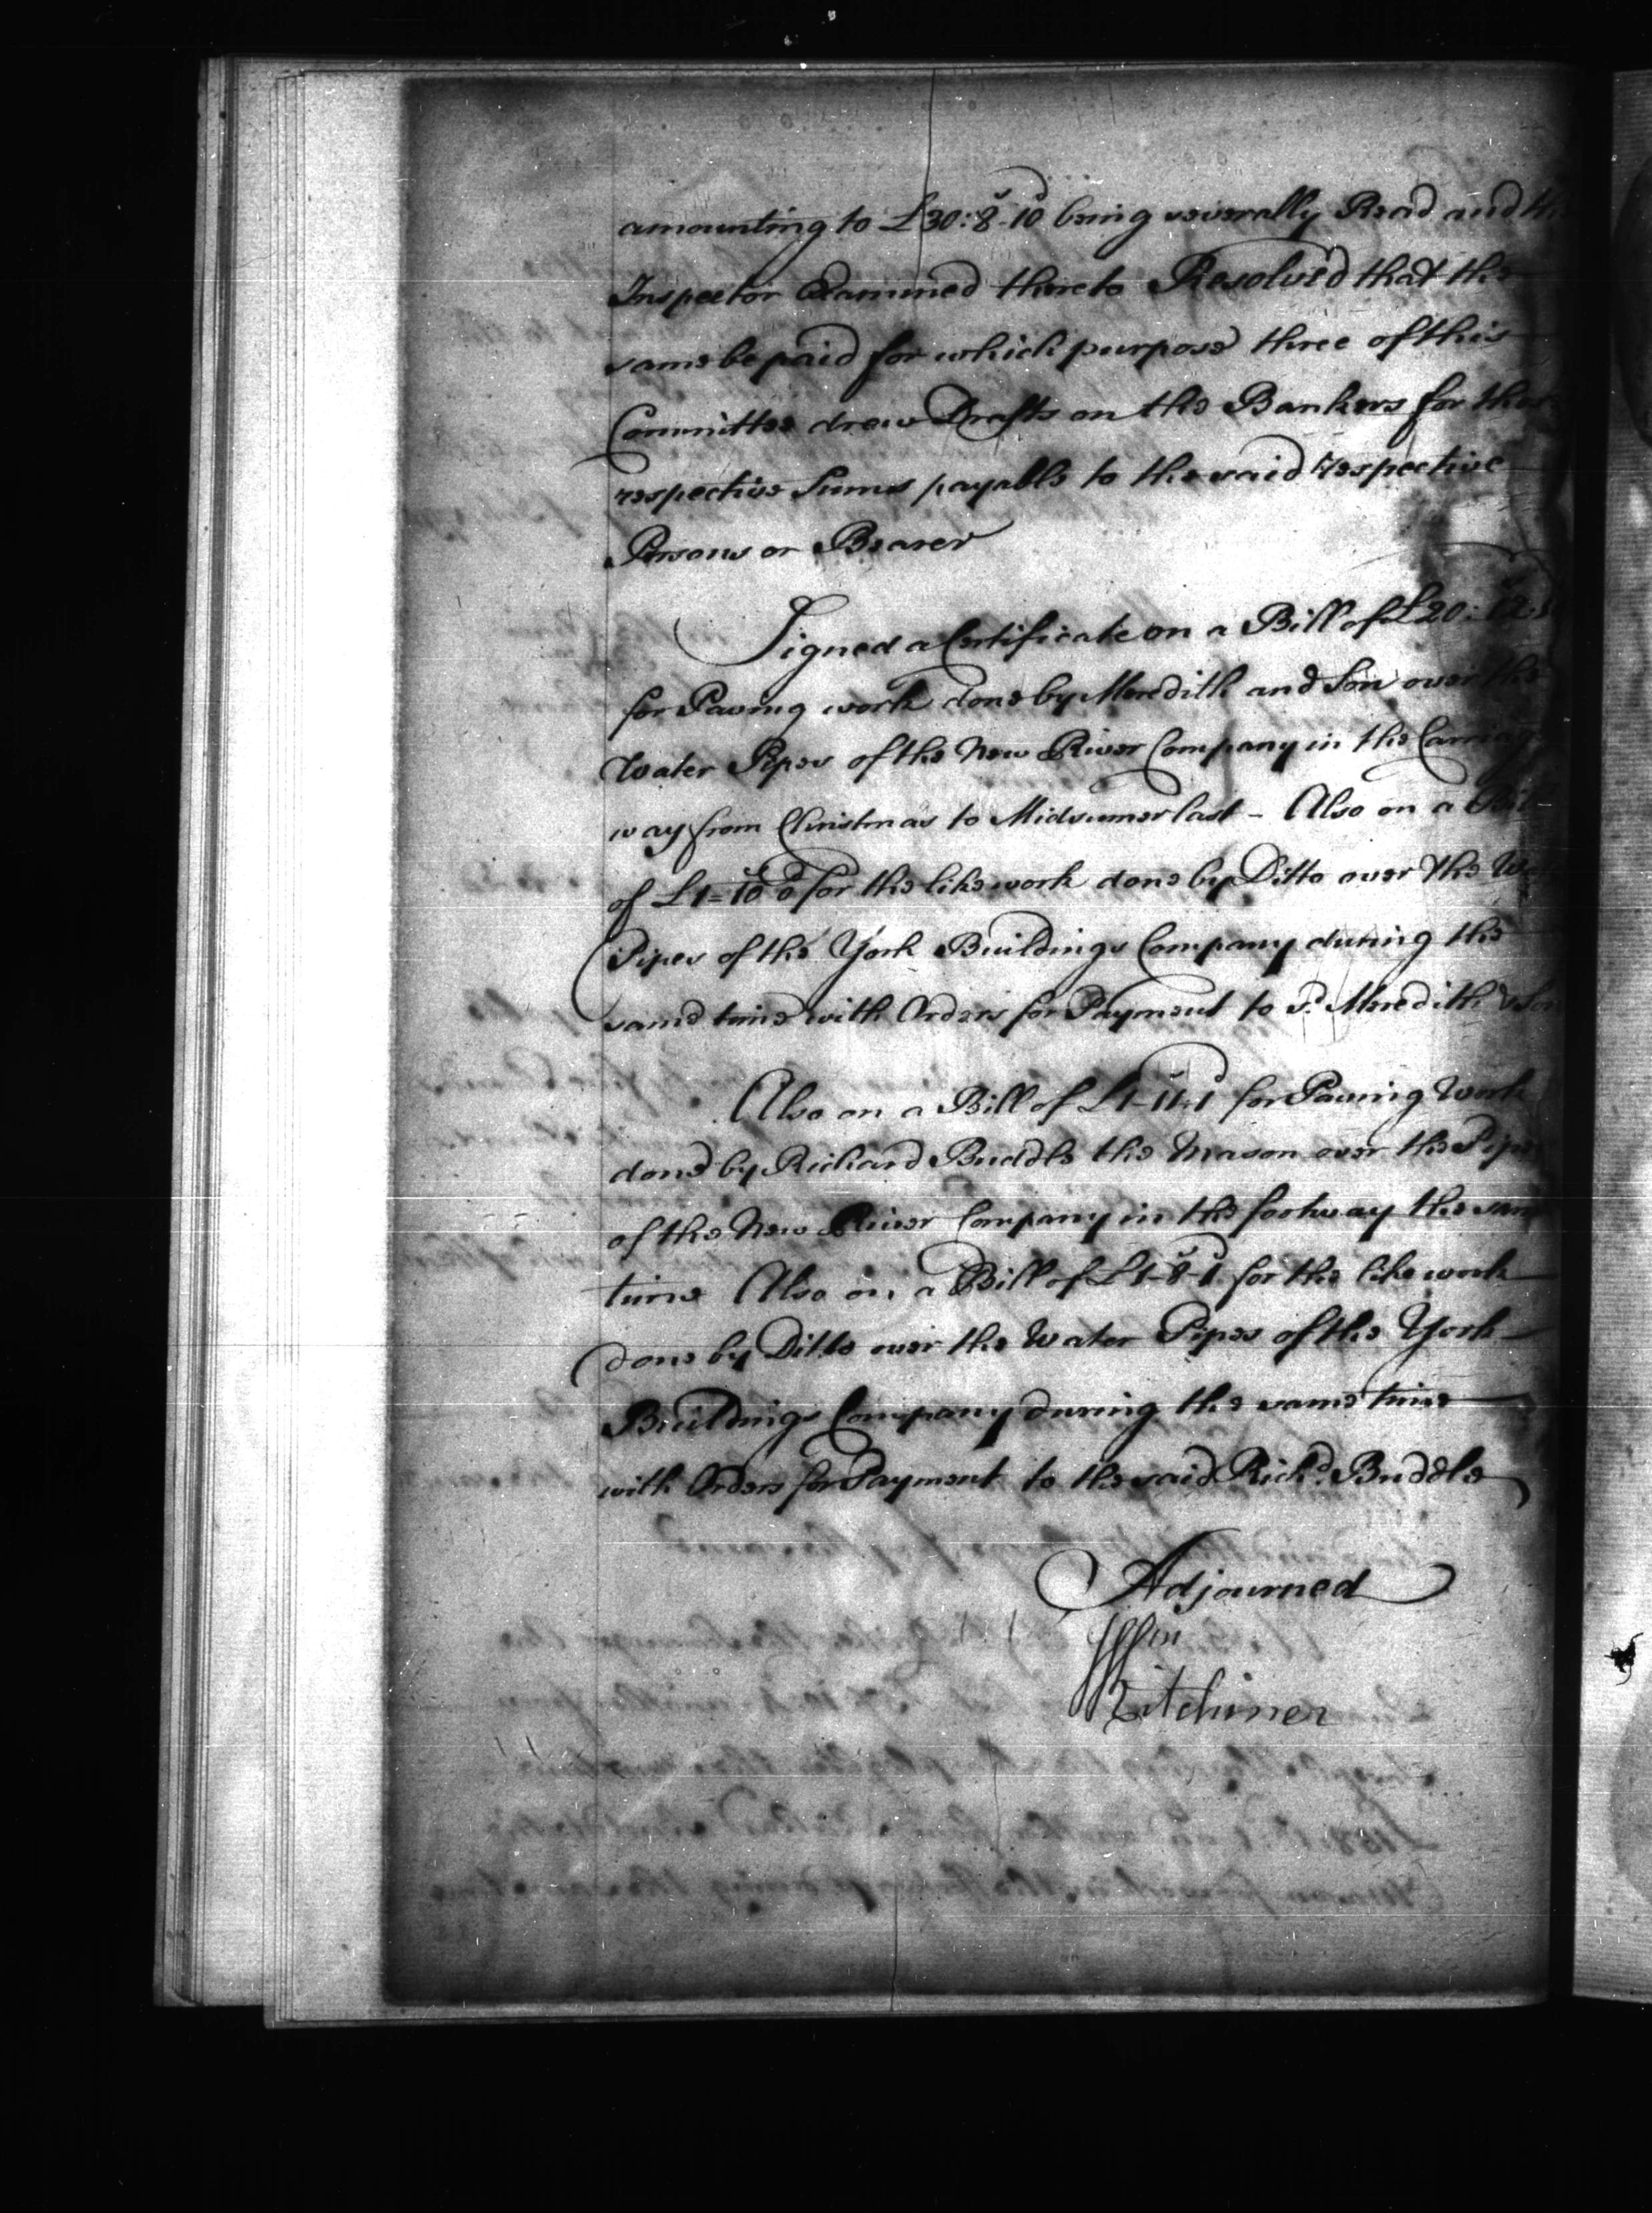 amounting to £30:8s.10d being severally Read and the
Inspector Examined thereto Resolved that the
same be paid for which purpose three of this
Committee drew Drafts on the Bankers for those
respective Sums payable to the said respective
Persons or Bearer
Signed a Certificate on a Bill of £20:12s
for Paving work done by Meredith and Son over the
Water Pipes of the New River Company in the Carriage
way from Christmas to Midsumer last - Also on a Bill
of £1=10s 0d for the like work done by Ditto over the
Pipes of the York Buildings Company during the
same time with Orders for Payment to sd. Meredith & Son
Also on a Bill of £1-11s-1d for Paving Work
done by Richard Buddle the Mason over the Pipes
of the New River Company in the footway the same
time Also on a Bill of £1-8s-1d for the like work
done by Ditto over the Water Pipes of the York
Buildings Company during the same time
with Orders for Payment to the said Richd. Buddle
Adjourned
Wm
Kitchiner